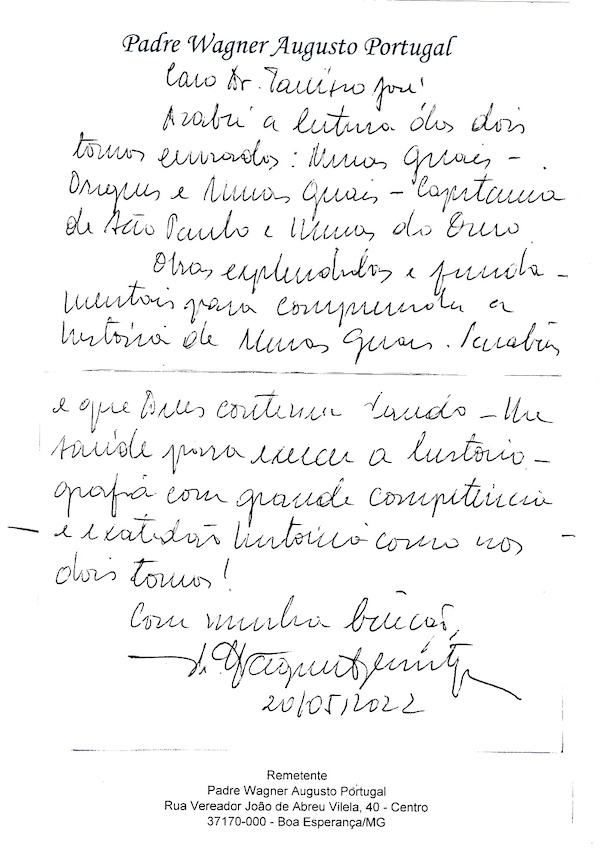 Padre Wagner Augusto Portugal
Caro Dr. Tarcísio José!
Acabei a leitura dos dois
tomos enviados: Minas Gerais -
Origens e Minas Gerais - Capitania
de São Paulo e Minas do Ouro.
Obras esplendidas e funda-
mentais para compreender a
história de Minas Gerais. Parabéns
e que Deus continue dando-lhe
saúde para exercer a historio-
grafia com grande competência
e exatidão histórica como nos
dois tomos!
Com minha bênção,
Pe. Wagner
20/05/2022
Remetente
Padre Wagner Augusto Portugal
Rua Vereador João de Abreu Vilela, 40 - Centro
37170-000 - Boa Esperança/MG